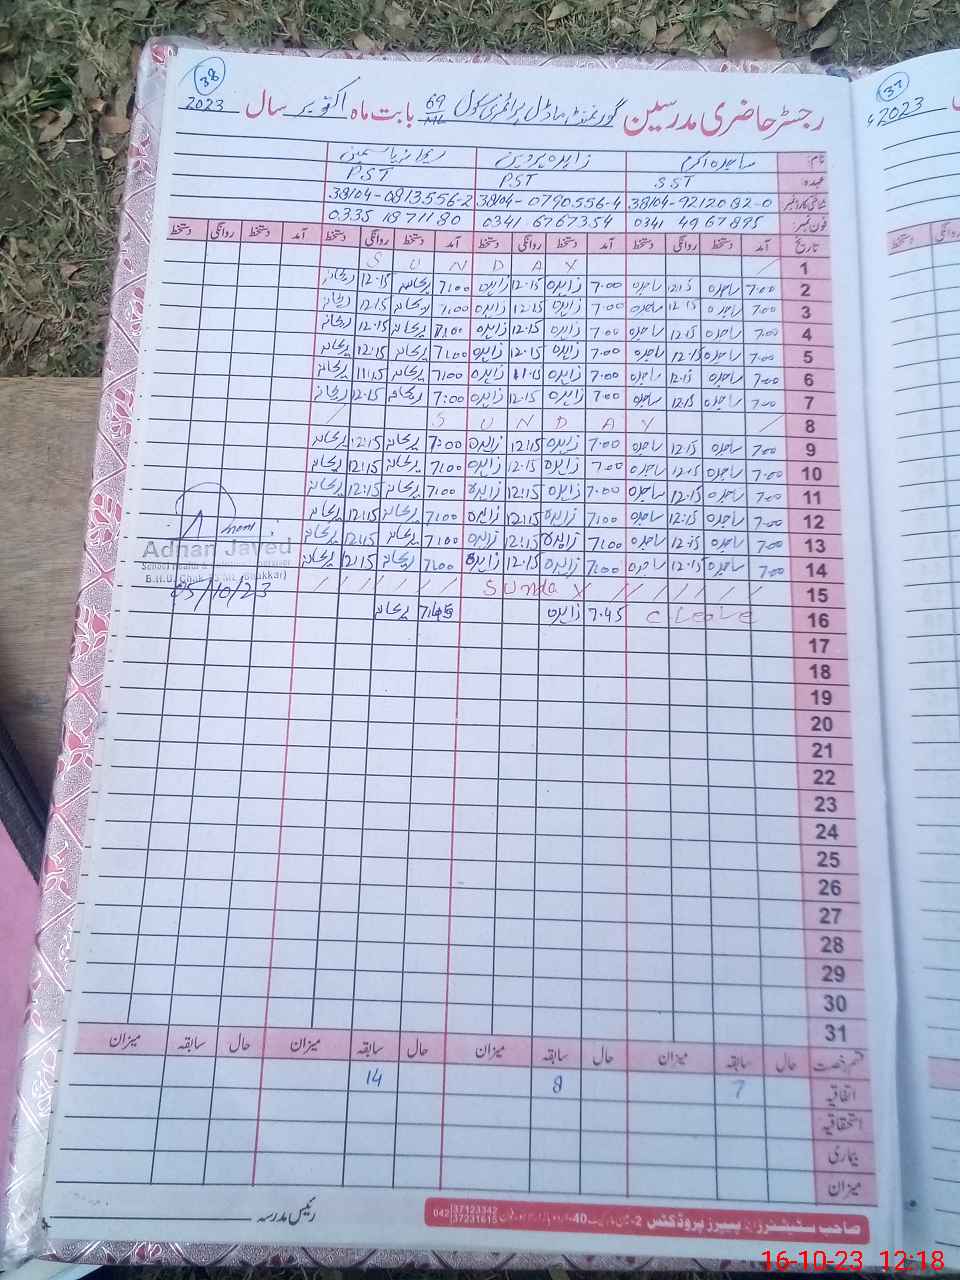 38
رجسٹر حاضری مدرسین گورنمنٹ ماڈل پرائمری سکول 69/ML بابت ماہ اکتوبر سال 2023
نام: ساجدہ اکرم زاہدہ پروین ریحانہ یاسمین
عہدہ: SST PST P.ST
شناختی کارڈ نمبر 38104-9212082-0 38104-0790556-4 38104-0813556-2
فون نمبر: 0341 4967895 0341 6767354 0335 1871180
تاریخ آمد دستخط روانگی دستخط آمد دستخط روانگی دستخط آمد دستخط روانگی دستخط آمد دستخط روانگی دستخط
1 S U N D A Y
2 7:00 ساجدہ 12:15 ساجدہ 7:00 زاہدہ 12:15 زاہدہ 7:00 ریحانہ 12:15 ریحانہ
3 7:00 ساجدہ 12:15 ساجدہ 7:00 زاہدہ 12:15 زاہدہ 7:00 ریحانہ 12:15 ریحانہ
4 7:00 ساجدہ 12:15 ساجدہ 7:00 زاہدہ 12:15 زاہدہ 7:00 ریحانہ 12:15 ریحانہ
5 7:00 ساجدہ 12:15 ساجدہ 7:00 زاہدہ 12:15 زاہدہ 7:00 ریحانہ 12:15 ریحانہ
6 7:00 ساجدہ 12:15 ساجدہ 7:00 زاہدہ 11:15 زاہدہ 7:00 ریحانہ 11:15 ریحانہ
7 7:00 ساجدہ 12:15 ساجدہ 7:00 زاہدہ 12:15 زاہدہ 7:00 ریحانہ 12:15 ریحانہ
8 S U N D A Y
9 7:00 ساجدہ 12:15 ساجدہ 7:00 زاہدہ 12:15 زاہدہ 7:00 ریحانہ 12:15 ریحانہ
10 7:00 ساجدہ 12:15 ساجدہ 7:00 زاہدہ 12:15 زاہدہ 7:00 ریحانہ 12:15 ریحانہ
11 7:00 ساجدہ 12:15 ساجدہ 7:00 زاہدہ 12:15 زاہدہ 7:00 ریحانہ 12:15 ریحانہ
12 7:00 ساجدہ 12:15 ساجدہ 7:00 زاہدہ 12:15 زاہدہ 7:00 ریحانہ 12:15 ریحانہ
13 7:00 ساجدہ 12:15 ساجدہ 7:00 زاہدہ 12:15 زاہدہ 7:00 ریحانہ 12:15 ریحانہ
14 7:00 ساجدہ 12:15 ساجدہ 7:00 زاہدہ 12:15 زاہدہ 7:00 ریحانہ 12:15 ریحانہ
Adnan Javed
School Health &
B.H.U Chak Bhakkar)
05/10/23
15 Sunday
16 C Leave 7:45 زاہدہ 7:45 ریحانہ
17
18
19
20
21
22
23
24
25
26
27
28
29
30
31
قسم رخصت حال سابقہ میزان حال سابقہ میزان حال سابقہ میزان حال سابقہ میزان
اتفاقیہ 7 8 14
استحقاقیہ
بیماری
میزان
صاحب سٹیشنرز اینڈ پیپرز پروڈکٹس 2- 40- 042 37123342 37231615
رئیس مدرسہ
37
2023
دستخط روانگی
16-10-23 12:18